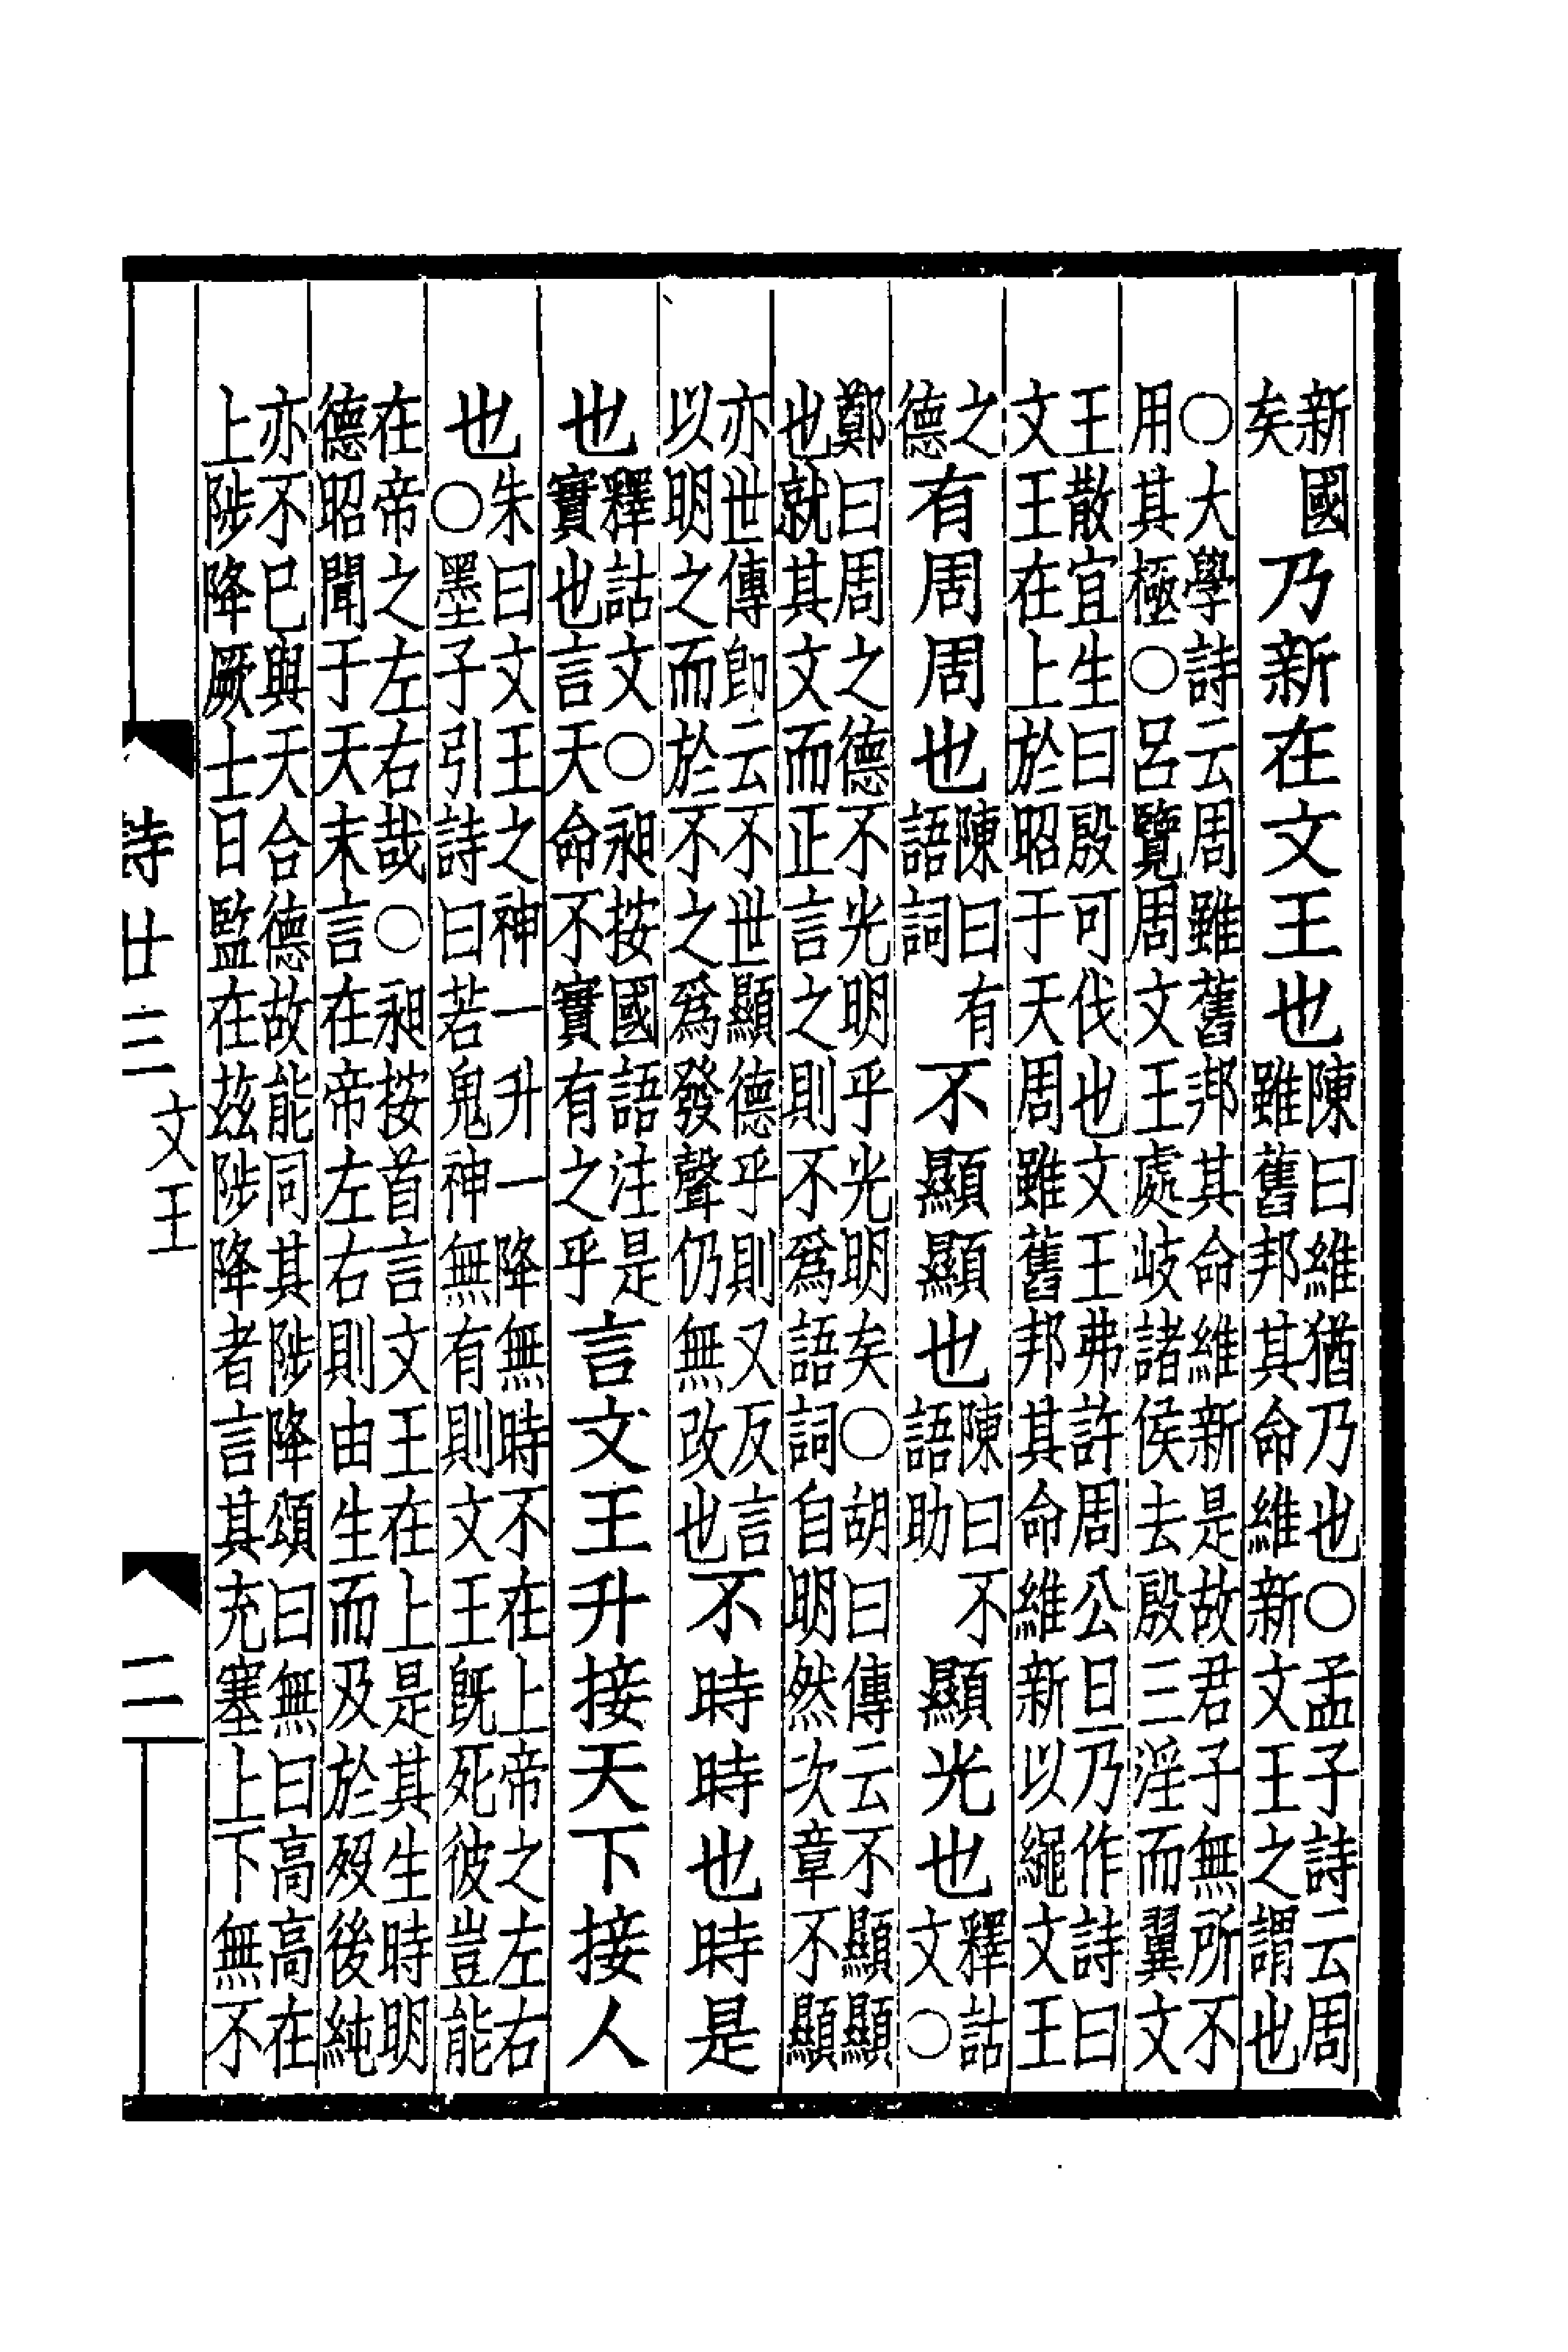 新國
矣
乃新在文王也
陳曰維猶乃也○孟子詩云周
雖舊邦其命維新文王之謂也
○大學詩云周雖舊邦其命維新是故君子無所不
用其極○呂覽周文王處岐諸侯去殷三淫而翼文
王散宜生曰殷可伐也文王弗許周公旦乃作詩曰
文王在上於昭于天周雖舊邦其命維新以繩文王
之
德
有周周也
陳曰有
語詞
不顯顯也
陳曰不
語助
顯光也
釋詁
文○
鄭曰周之德不光明乎光明矣○胡曰傳云不顯顯
也就其文而正言之則不爲語詞自明然次章不顯
亦世傳卽云不世顯德乎則又反言
以明之而於不之爲發聲仍無改也
不時時也時是
也
釋詁文○昶按國語注是
實也言天命不實有之乎
言文王升接天下接人
也
朱曰文王之神一升一降無時不在上帝之左右
○墨子引詩曰若鬼神無有則文王旣死彼豈能
在帝之左右哉○昶按首言文王在上是其生時明
德昭聞于天末言在帝左右則由生而及於歿後純
亦不已與天合德故能同其陟降頌曰無曰高高在
上陟降厥士日監在茲陟降者言其充塞上下無不
詩廿三
文王
二